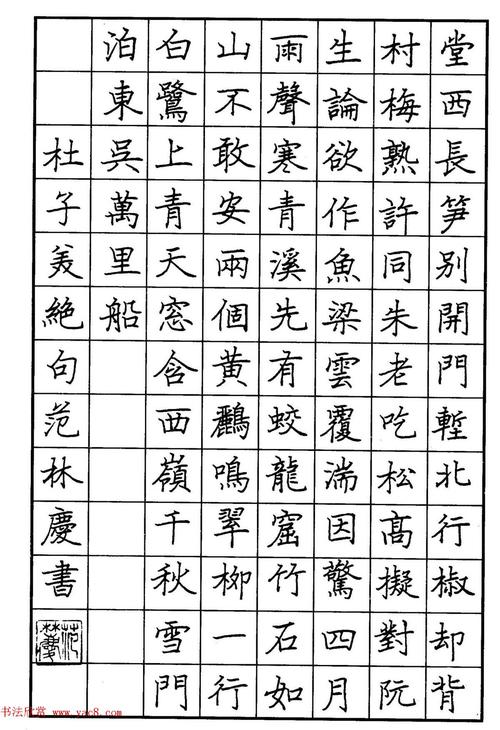 堂西長笋別開門塹北行椒却背
村梅熟許同朱老吃松高擬對阮
生論欲作魚梁雲覆湍因驚四月
雨聲寒青溪先有蛟龍窟竹石如
山不敢安兩個黃鸝鳴翠柳一行
白鷺上青天窓含西嶺千秋雪門
泊東吳萬里船
杜子美絶句范林慶書
范林慶
书法欣赏 www.yac8.com